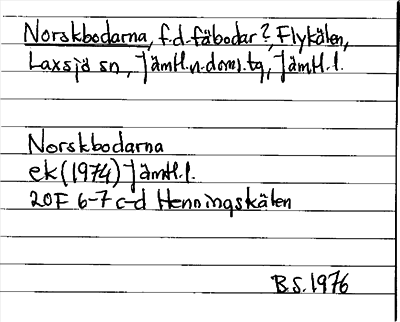 Norskbodarna, f.d. fäbodar?, Flykälen,
Laxsjö sn, Jämtl.n.doms.tg, Jämtl.l.
Norskbodarna
ek(1974) Jämtl.l.
20F 6-7 c-d Henningskälen
B.S. 1976